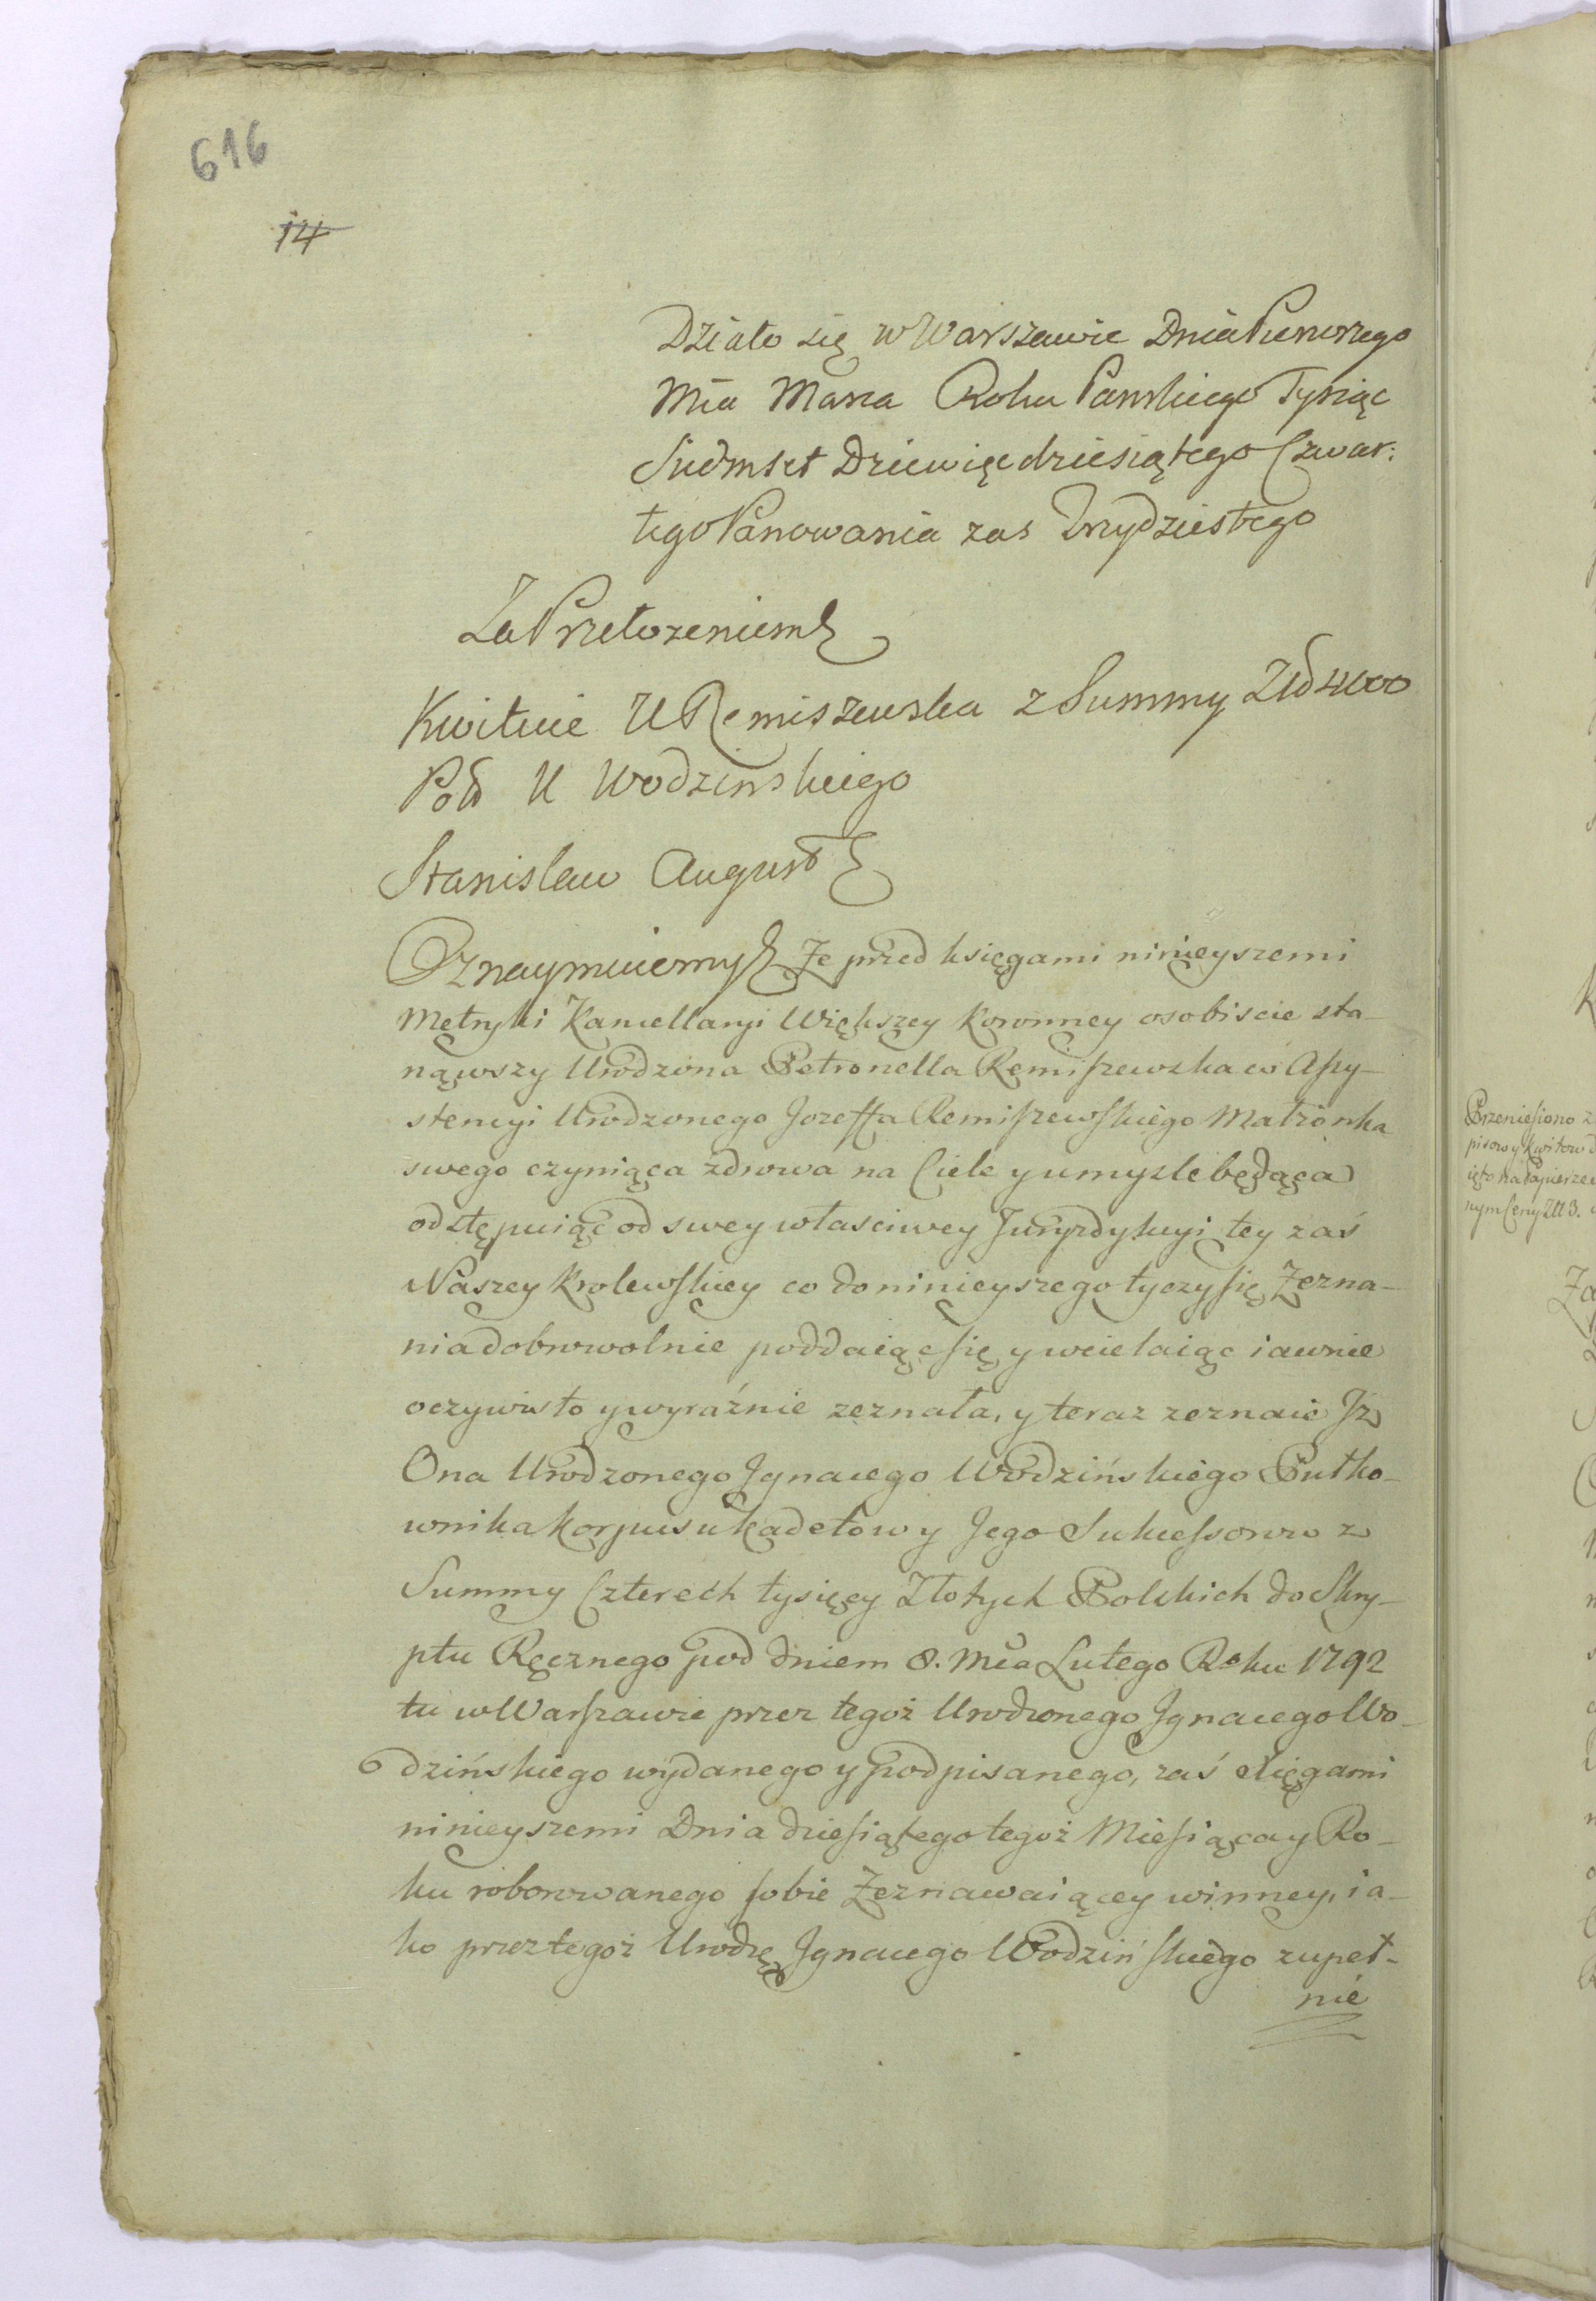 616
14
Działo się w Warszawie Dnia Pierwszego
Mca Marca Roku Pańskiego Tysiąc
Siedmset Dziewięcdziesiątego Czwar:
tego Panowania zas Trzydziestego
Za Przełozeniem
Kwituie U Remiszewska z Summy Zło 4000
Połk U Wodzinskiego
Stanisław August
Oznaymuiemy Ze przed księgami ninieyszemi
Metryki Kancellaryi Większey Koronney osobiscie sta-
nąwszy Urodzona Petronella Remiszewska w Assy-
stencyi Urodzonego Jozeffa Remiszewskiego Małżonka
swego czyniąca zdrowa na Ciele y umysle będąca
odstępuiąc od swey własciwey Juryzdykcyi tey zaś
Naszey Krolewskiey co do ninieyszego tyczy się Zezna-
nia dobrowolnie poddaiąc się y wcielaiąc iawnie
oczywisto y wyraźnie zeznała, y teraz zeznaie Jż
Ona Urodzonego Jgnacego Wodzińskiego Pułko-
wnika Korpusu Kadetow y Jego Sukcessorow z
Summy Czterech tysięcy Złotych Polskich do Skry-
ptu Ręcznego pod dniem 8. Mca Lutego Roku 1792
tu w Warszawie przez tegoż Urodzonego Jgnacego Wo-
dzińskiego wydanego y podpisanego, zaś Xięgami
ninieyszemi Dnia dziesiątego tegoż Miesiąca y Ro-
ku roborowanego sobie Zeznawaiącey winney, ia-
ko przez tegoż Urodzę Jgnacego Wodzińskiego zupeł-
nie
Przeniesiono z
pisowy Kwitow
ięto na Papierze
nym Ceny Zł 3.